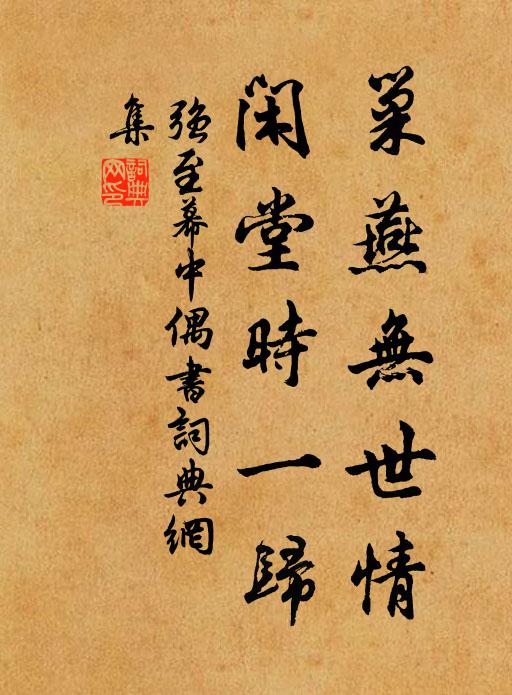 巢燕無世情
閑堂時一歸
强至幕中偶書詞典網
集
詞典
网印